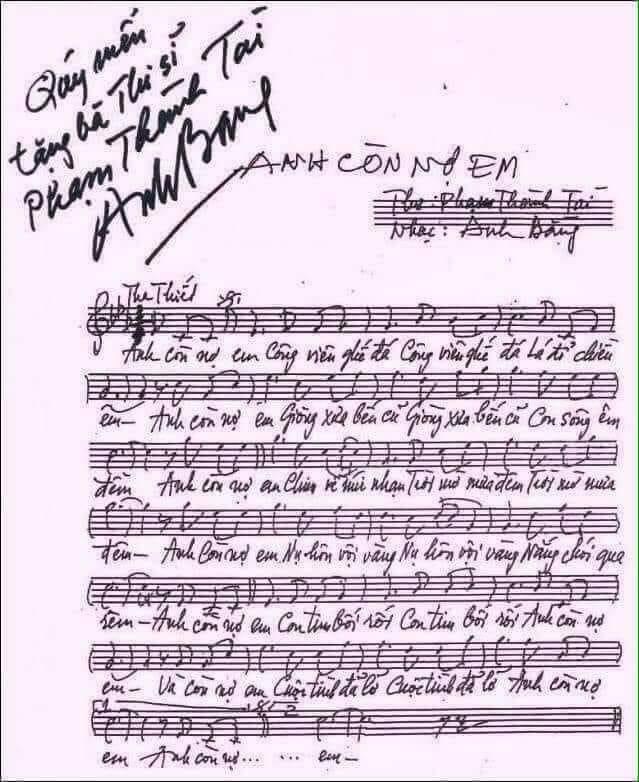 Quý mến
tặng bà Thi sĩ
Phạm Thành Tài
Anh Bằng
ANH CÒN NỢ EM
Thơ: Phạm Thành Tài
Nhạc: Anh Bằng
Tha Thiết
Anh còn nợ em Công viên ghế đá Công viên ghế đá Lá đổ chiều
êm- Anh còn nợ em Giòng xưa bến cũ Giòng xưa bến cũ Con sông êm
đềm Anh còn nợ em Chim về núi nhạn Trời mờ mưa đêm Trời mờ mưa
đêm- Anh còn nợ em Nụ hôn vội vàng Nụ hôn vội vàng Nắng chói qua
rèm- Anh còn nợ em Con tim bối rối Con tim bối rối Anh còn nợ
em- Và còn nợ em Cuộc tình đã lỡ Cuộc tình đã lỡ Anh còn nợ
1 2
em Anh còn nợ... ... em-